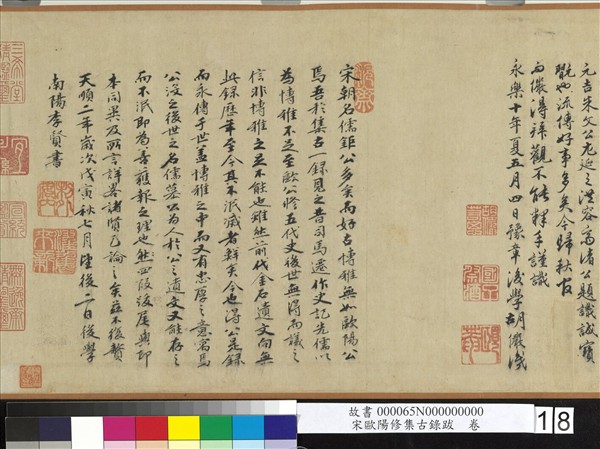 元吉朱文公尤延之洪容齋諸公題識誠寶
翫也流傳好事多矣今歸秋官
而儼得諦觀不能釋手謹識
永樂十年夏五月四日豫章後學胡儼識
宋朝名儒鉅公多矣而好古博雅無如歐陽公
焉吾於集古一錄見之昔司馬遷作史記先儒以
為博雅不足至歐公修五代史後世無得而議之
信非博雅之至不能也雖然前代金石遺文向無
此錄歷年至今其不泯滅者鮮矣今也得公是錄
而永傳于世蓋博雅之中而又有忠厚之意寓焉
公沒之後世之名儒慕公為人於公之遺文又能存之
而不泯即為善獲報之理也然四跋後尾與印
本同異及所言詳畧諸賢已論之矣茲不復贅
天順二年歲次戊寅秋七月望後二日後學
南陽李賢書
故書 000065N000000000
宋歐陽修集古錄跋 卷
18